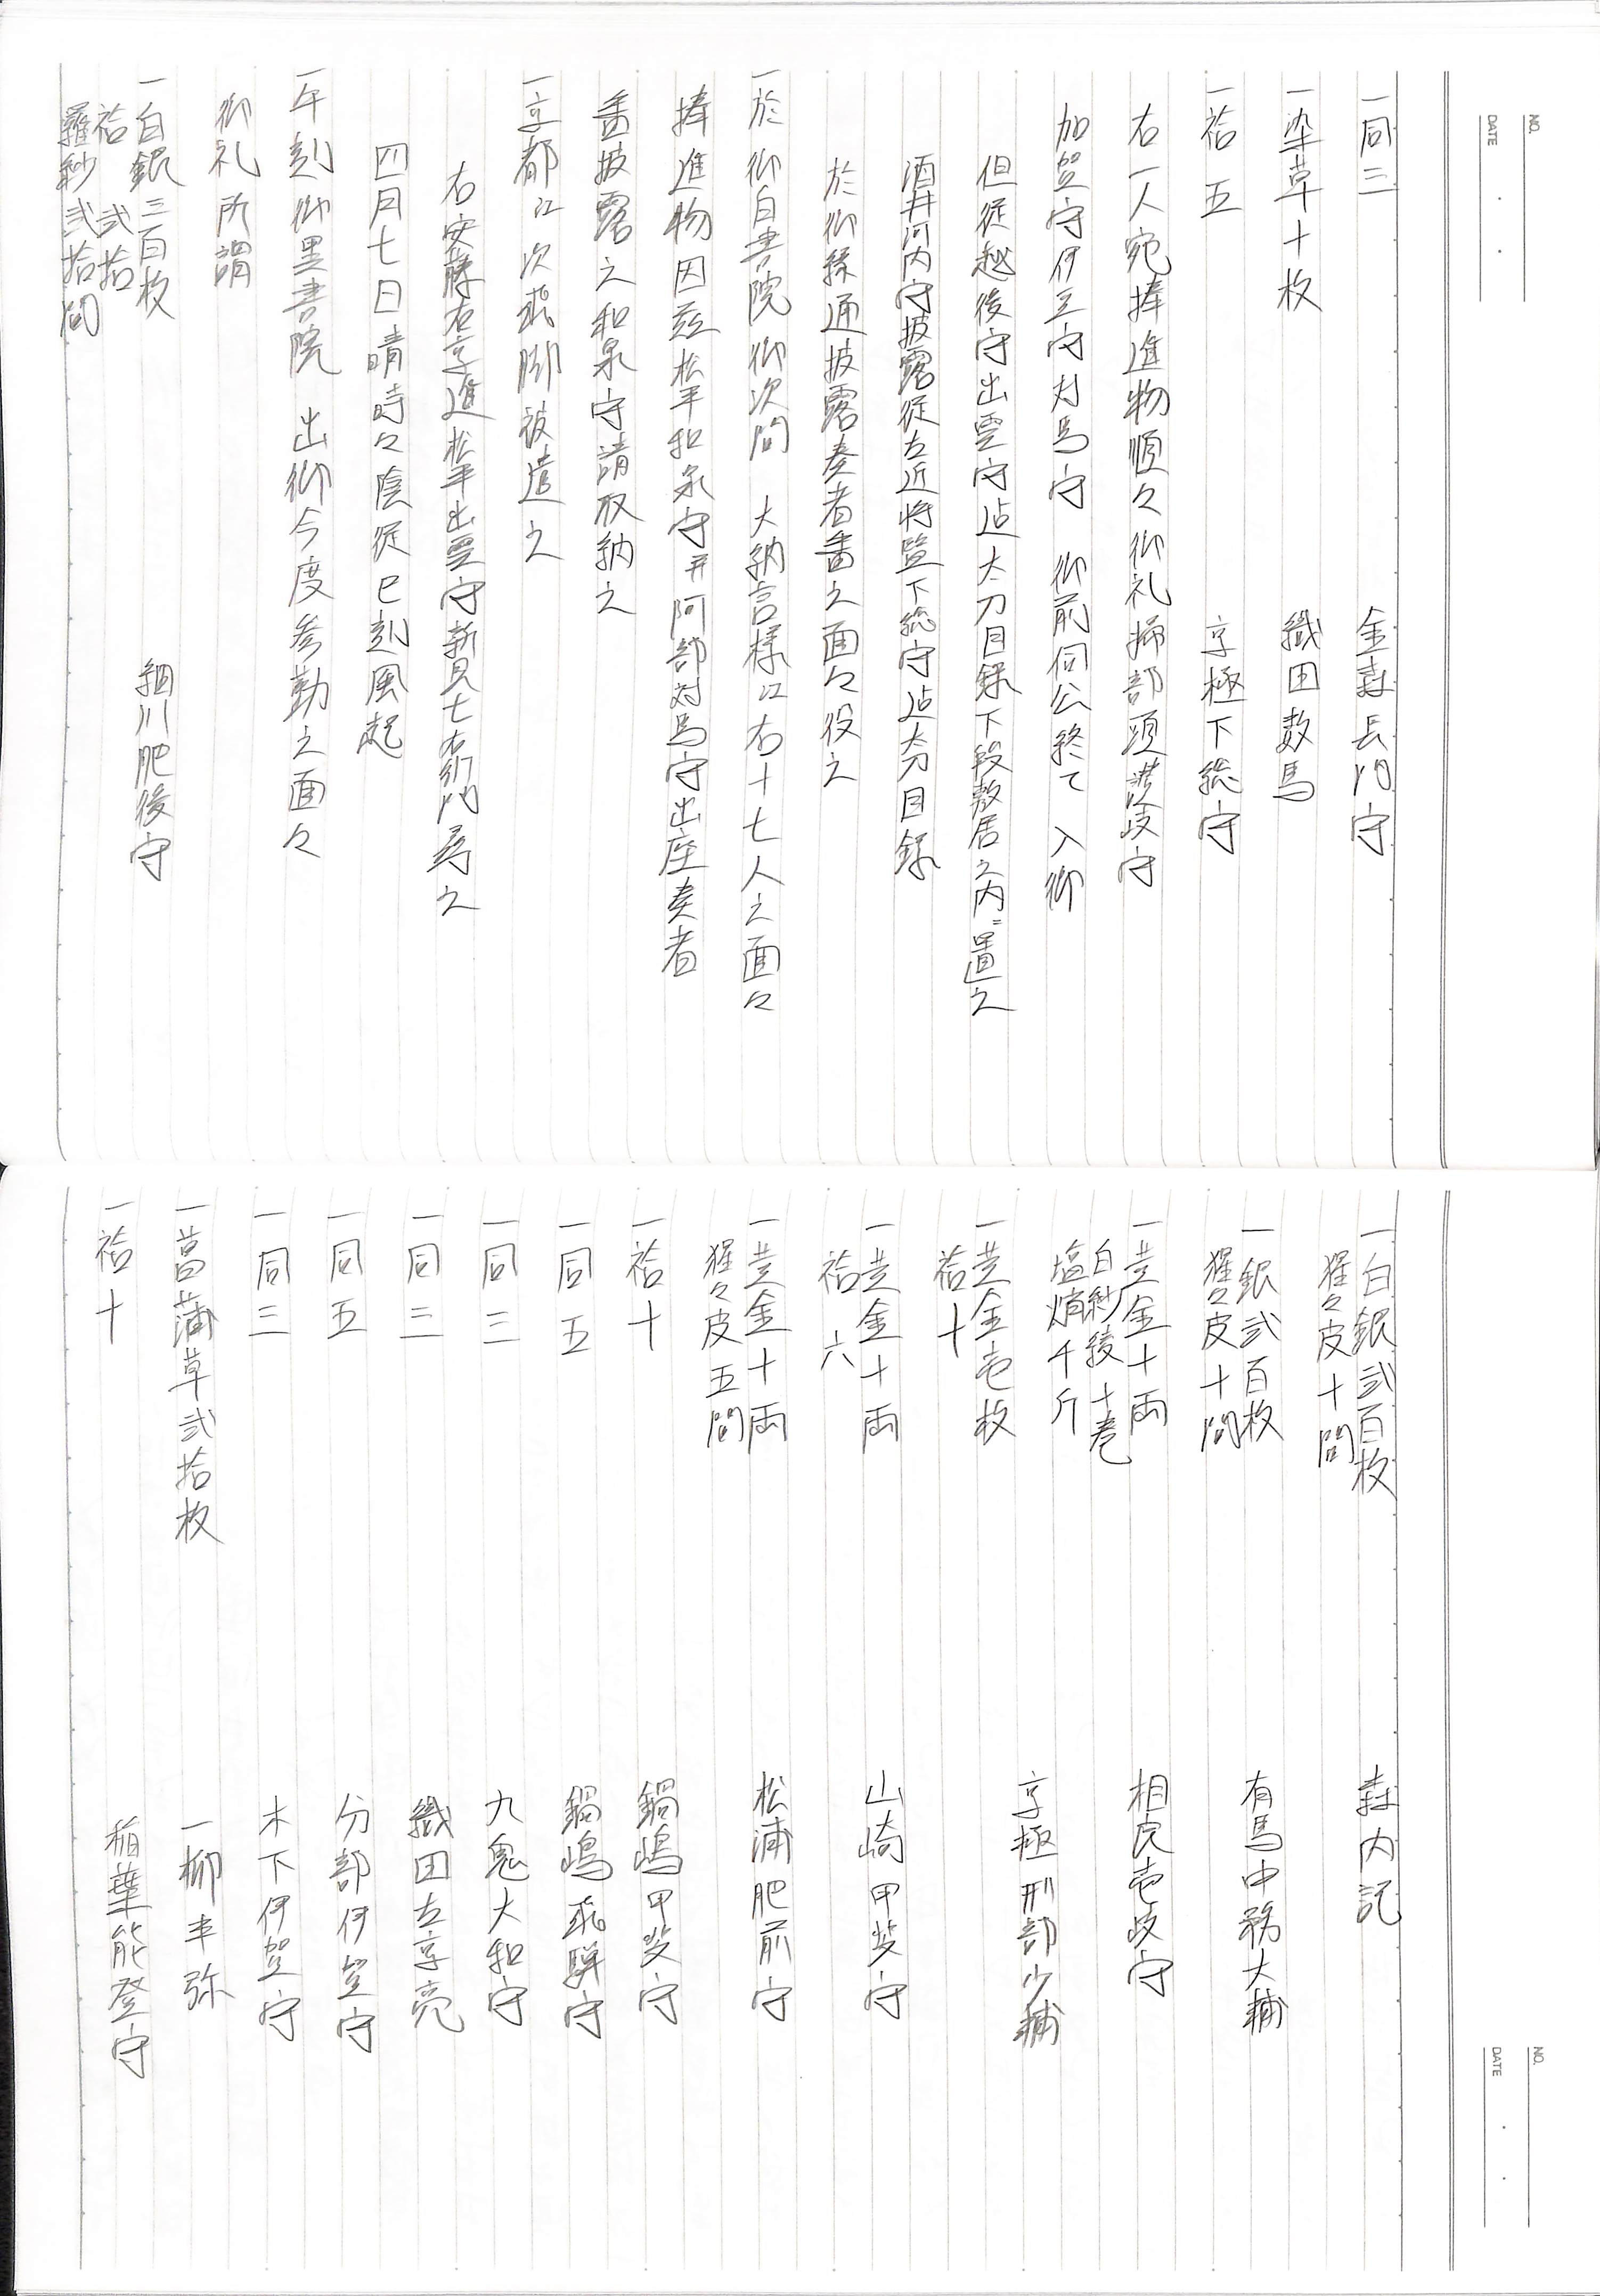 NO.
DATE
一同三 金森長門守
一染草十枚 織田数馬
一袷 五 京極下総守
右一人宛捧進物順々御礼掃部頭讃岐守
加賀守伊豆守対馬守 御前伺公終て 入御
但従越後守出雲守迄太刀目録下段敷居之内ニ置之
酒井河内守披露従左近将監下総守迄太刀目録
於御縁通披露奏者番之面々役之
一於御白書院御次間 大納言様江右十七人之面々
捧進物因茲松平和泉守并阿部対馬守出座奏者
番披露之和泉守請取納之
一京都江次飛脚被遣之
右安藤右京進松平出雲守新見七右衛門尋之
四月七日晴時々陰従巳刻風起
一午刻御黒書院 出御今度参勤之面々
御礼所謂
一白銀三百枚 細川肥後守
袷 弐拾
羅紗弐拾間
NO.
DATE
一白銀弐百枚 森内記
猩々皮十間
一銀弐百枚 有馬中務大輔
猩々皮十間
一黄金十両 相良壱岐守
白紗綾十巻
塩焇千斤
京極刑部少輔
一黄金壱枚
袷十
一黄金十両 山崎甲斐守
袷 六
一黄金十両 松浦肥前守
猩々皮五間
一袷十 鍋嶋甲斐守
一同五 鍋嶋飛騨守
一同三 九鬼大和守
一同三 織田左京亮
一同五 分部伊賀守
一同三 木下伊賀守
一菖蒲草弐拾枚 一柳半弥
一袷十 稲葉能登守